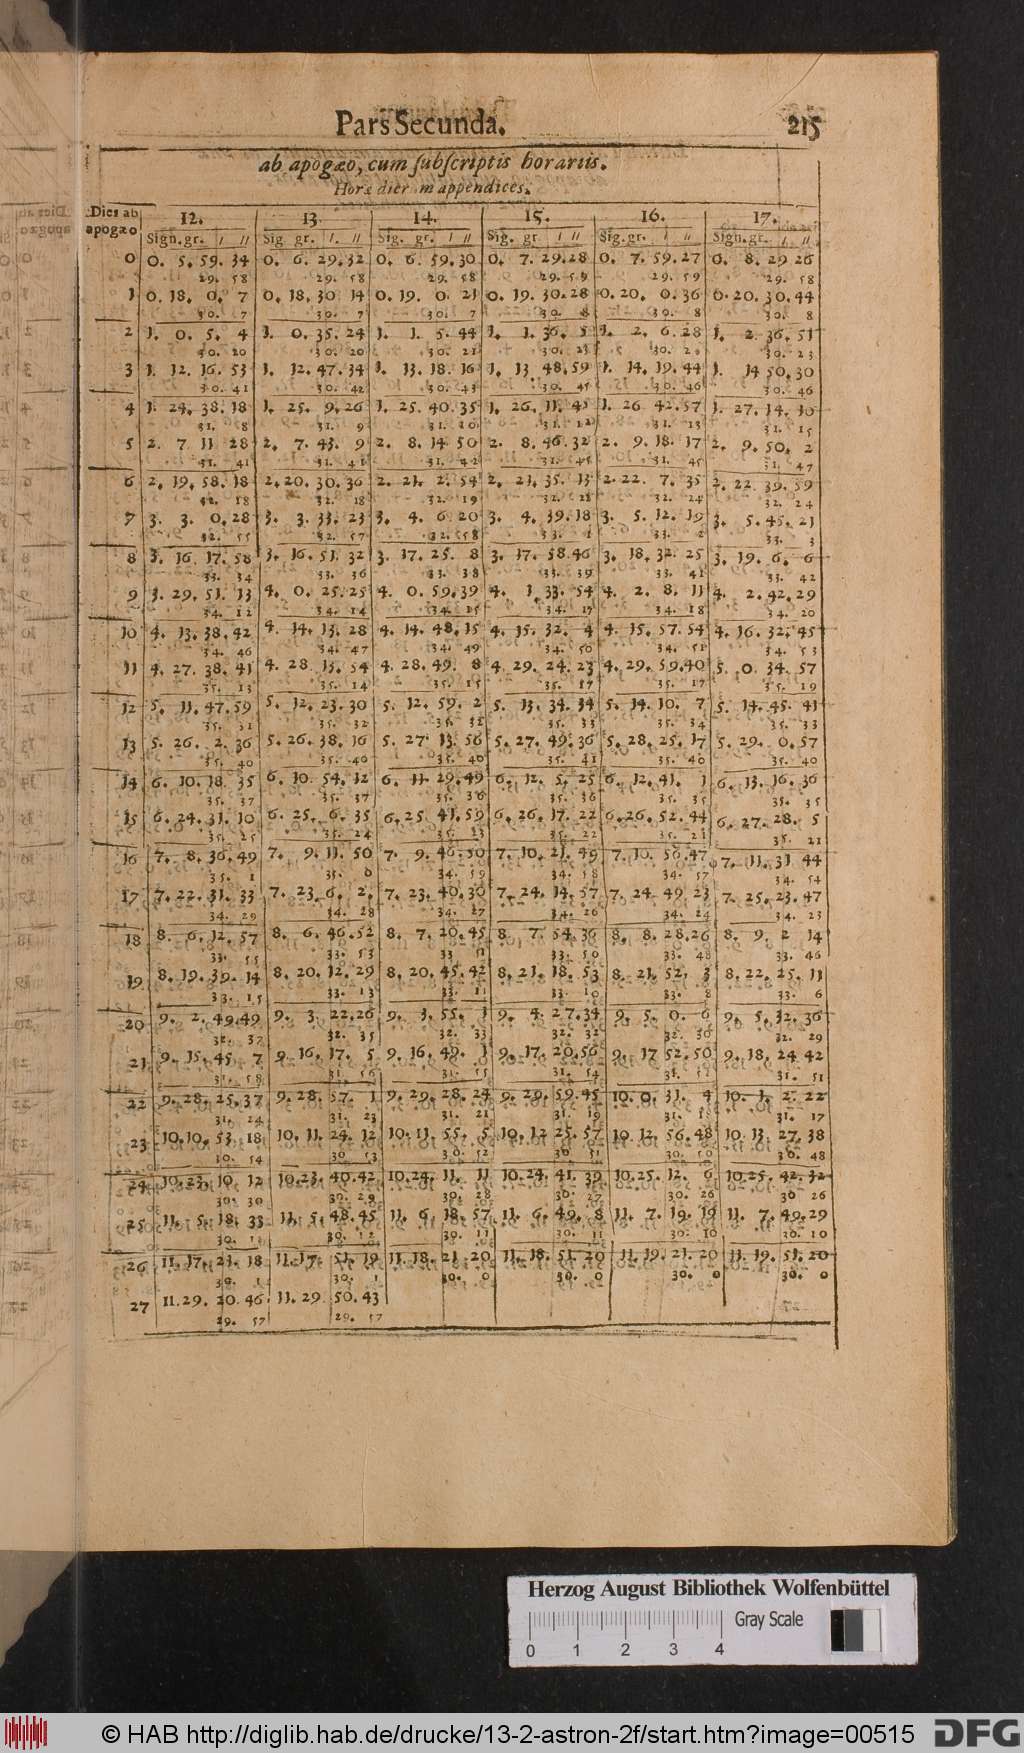 Pars Secunda. 215
ab apogæo, cum ſubſcriptis horariis.
Horæ dier m appendices.
Dies ab apogæo 12. 13. 14. 15. 16. 17.
Sign. gr. I II Sig gr. I. II Sig. gr. I II Sig. gr I II Sig. gr. I II Sign. gr. I II
0 0. 5. 59. 34 0. 6. 29. 32 0. 6. 59. 30 0. 7. 29. 28 0. 7. 59. 27 0. 8. 29 26
29. 58 29. 58 29. 58 29. 59 29. 59 29. 58
1 0. 18. 0. 7 0. 18. 30 14 0. 19. 0 21 0. 19. 30. 28 0. 20. 0. 36 0. 20. 30. 44
30. 7 30. 7 30. 7 30. 8 30. 8 30. 8
2 1. 0. 5. 4 1. 0. 35. 24 1. 1. 5. 44 1. 1. 36. 5 1. 2. 6. 28 1. 2 36. 51
30. 20 30. 20 30. 21 30. 23 30. 30. 23
3 1. 12. 16. 53 1. 12. 47. 34 1. 13. 18. 16 1. 13 48. 59 1. 14. 19. 44 1. 14 50. 30
30. 41 30. 42 30. 43 30. 45 30. 46 30. 46
4 1. 24. 38. 18 1. 25. 9. 26 1. 25. 40. 35 1. 26. 11. 45 1. 26 42. 57 1. 27. 14. 10
31. 8 31. 9 31. 10 31. 12 31. 13 31. 15
5 2. 7 11 28 2. 7. 43. 9 2. 8. 14 50 2. 8. 46. 32 2. 9. 18. 17 2. 9. 50. 2
31. 41 31. 41 31. 42 31. 45 31. 45 31. 47
6 2. 19. 58. 18 2. 20. 30. 36 2. 21. 2. 54 2. 21. 35. 13 2. 22. 7. 35 2. 22. 39. 59
32. 18 32. 18 32. 19 32. 21 32. 24 32. 24
7 3. 3. 0. 28 3. 3. 33. 23 3. 4. 6. 20 3. 4. 39. 18 3. 5. 12. 19 3. 5. 45. 21
32. 55 32. 57 32. 58 33. 1 33. 2 33. 3
8 3. 16 17. 58 3. 16. 51. 32 3. 17. 25. 8 3. 17. 58. 46 3. 18. 32. 25 3. 19. 6. 6
33. 34 33. 36 33. 38 33. 39 33. 41 33. 42
9 3. 29. 51. 13 4. 0. 25. 25 4. 0. 59. 39 4. 1 33. 54 4. 2. 8. 11 4. 2. 42. 29
34. 12 34. 14 34. 15 34. 17 34. 18 34. 20
10 4. 13. 38. 42 4. 14. 13. 28 4. 14. 48. 15 4. 15. 32. 4 4. 15. 57. 54 4. 16. 32. 45
34. 46 34. 47 34. 49 34. 50 34. 51 34. 53
11 4. 27. 38. 41 4. 28 13. 54 4. 28. 49. 8 4 29. 24. 23 4. 29. 59. 40 5. 0. 34. 57
35. 13 35. 14 35. 15 35. 17 35. 17 35. 19
12 5. 11. 47. 59 5. 12. 23. 30 5. 12. 59. 2 5. 13. 34. 34 5. 14. 10. 7 5. 14. 45. 41
35. 31 35. 32 35. 32 35. 33 35. 34 35. 33
13 5. 26. 2. 36 5. 26. 38. 16 5. 27 13. 56 5. 27. 49. 36 5. 28. 25. 17 5. 29. 0. 57
35. 40 35. 40 35. 40 35. 41 35. 40 35. 40
14 6. 10. 18. 35 6. 10 54. 12 6. 11 29. 49 6. 12. 5. 25 6. 12. 41. 1 6. 13. 16. 36
35. 37 35. 37 35. 36 35. 36 35. 35 35. 35
15 6. 24. 31. 10 6. 25. 6. 35 6. 25 41. 59 6. 26. 17. 22 6. 26. 52. 44 6. 27. 28. 5
35. 25 35. 24 35. 23 35. 22 35. 21 35. 21
16 7. 8. 36. 49 7. 9. 11. 50 7. 9. 46. 50 7. 10. 21. 49 7. 10. 56. 47 7. 11. 31. 44
35. 1 35. 0 34. 59 34. 58 34. 57 34. 54
17 7. 22. 31. 33 7. 23. 6. 2. 7. 23. 40. 30 7. 24. 14. 57 7. 24. 49. 23 7. 25. 23. 47
34. 29 34. 28 34. 27 34. 26 34. 24 34. 23
18 8. 6. 12. 57 8. 6. 46. 52 8. 7. 20. 45 8 7. 54. 36 8. 8. 28. 26 8. 9. 2 14
33. 55 33. 53 33 51 33. 50 33. 48 33. 46
19 8. 19. 39. 14 8. 20. 12. 29 8. 20. 45. 42 8. 21. 18. 53 8. 21. 52. 3 8. 22. 25. 11
33. 15 33. 13 33. 11 33. 10 33. 8 33. 6
20 9. 2. 49. 49 9. 3. 22. 26 9. 3. 55. 1 9. 4. 27. 34 9. 5. 0. 6 9. 5. 32. 36
32. 37 32. 35 32. 33 32. 32 32. 30 32. 29
21 9. 15. 45. 7 9. 16. 17. 5 9. 16. 49. 1 9. 17. 20. 56 9. 17 52. 50 9. 18. 24 42
31. 58 31. 55 31. 55 31. 54 31. 52 31. 51
22 9. 28. 25. 37 9. 28. 57. 1 9. 29. 28. 24 9. 29. 59. 45 10. 0. 31. 4 10. 1. 2. 22
31. 24 31. 23 31. 21 31. 19 31. 18 31. 17
23 10. 10. 53. 18 10. 11. 24. 12 10. 11. 55. 5 10. 12 25. 57 10. 12. 56. 48 10. 13. 27. 38
30. 54 30. 53 30. 52 30. 51 30. 50 30. 48
24 10. 23. 10. 12 10. 23. 40. 42 10. 24. 11. 11 10. 24. 41. 39 10. 25. 12. 6 10. 25. 42. 32
30. 30 30. 29 30. 28 30. 27 30. 26 30 26
25 11. 5. 18. 33 11. 5. 48. 45 11. 6 18. 57 11. 6. 49. 8 11. 7. 19. 19 11. 7. 49. 29
30. 12 30. 12 30. 11 30. 11 30. 10 30. 10
26 11. 17. 21. 18 11. 17. 51. 19 11. 18. 21. 20 11. 18. 51. 20 11. 19. 21. 20 11. 19. 51. 20
30. 1 30. 1 30. 0 30. 0 30. 0 30. 0
27 11. 29. 20. 46 11. 29 50. 43
29. 57 29. 57
Herzog August Bibliothek Wolfenbüttel
Gray Scale
0 1 2 3 4
© HAB http://diglib.hab.de/drucke/13-2-astron-2f/start.htm?image=00515 DFG